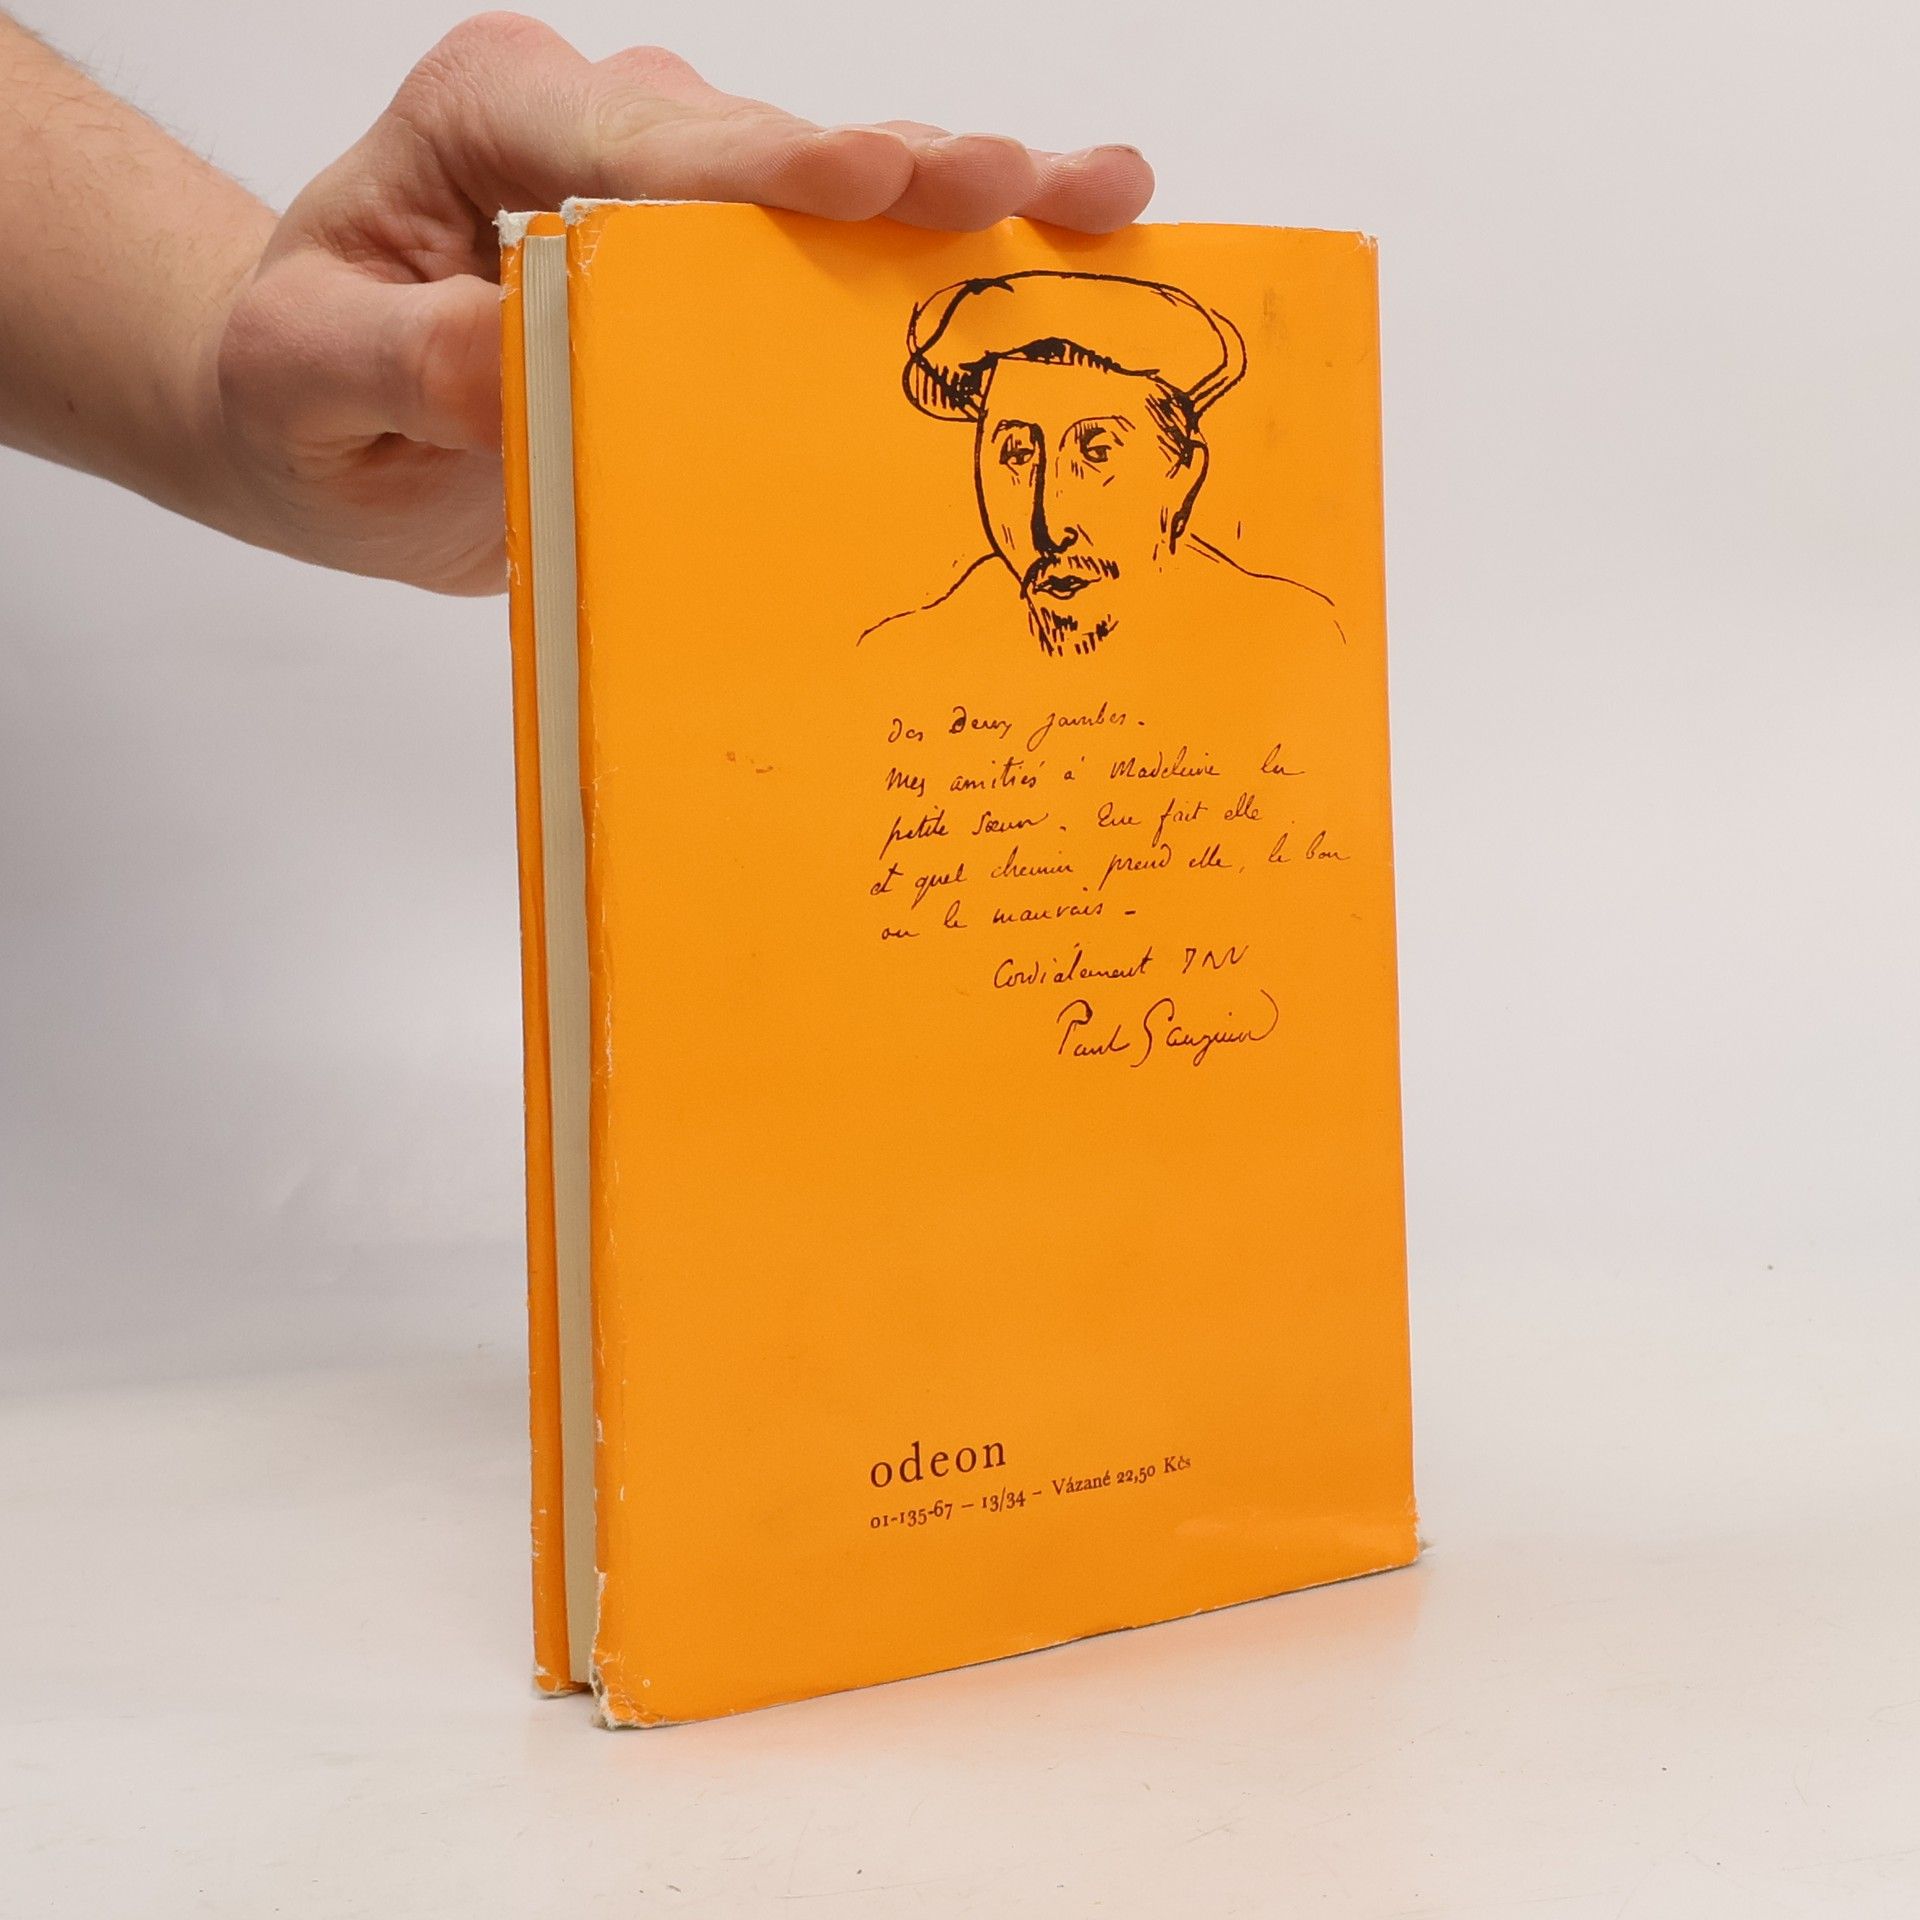 des deux jambes.
Mes amitiés à Madeleine la
petite sœur. Que fait elle
et quel chemin prend elle, le bon
ou le mauvais -
Cordialement
Paul Gauguin
odeon
01-135-67 – 13/34 – Vázané 22,50 Kčs